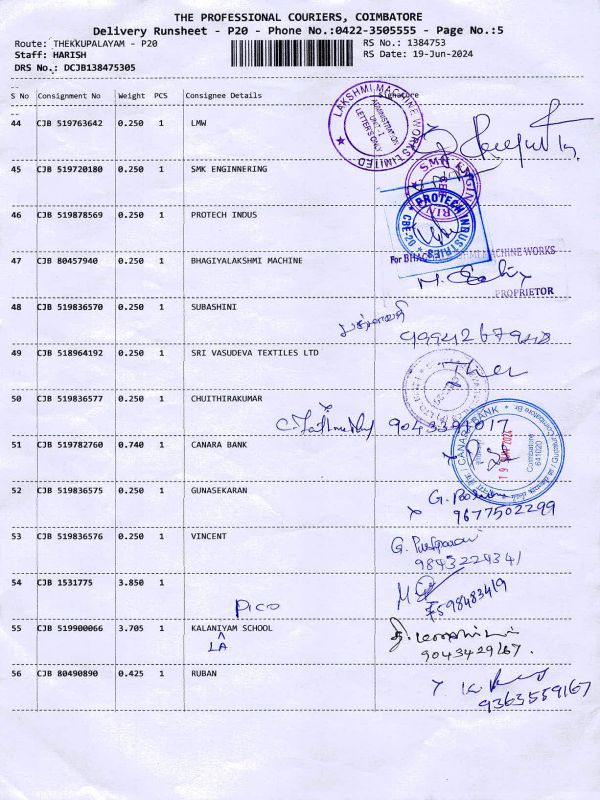 THE PROFESSIONAL COURIERS, COIMBATORE
Delivery Runsheet - P20 - Phone No.:0422-3505555 - Page No.:5
Route: THEKKUPALAYAM - P20 RS No.: 1384753
Staff: HARISH RS Date: 19-Jun-2024
DRS No.: DCJB138475305
S No Consignment No Weight PCS Consignee Details Signature
LAKSHMI MACHINE WORKS LIMITED
ADMINISTRATION
UNIT-1
LETTERS ONLY
44 CJB 519763642 0.250 1 LMW
45 CJB 519720180 0.250 1 SMK ENGINNERING
46 CJB 519878569 0.250 1 PROTECH INDUS
PROTECH INDUSTRIES
CBE-20
For BHAG MACHINE WORKS
47 CJB 80457940 0.250 1 BHAGIYALAKSHMI MACHINE
PROPRIETOR
48 CJB 519836570 0.250 1 SUBASHINI
49 CJB 518964192 0.250 1 SRI VASUDEVA TEXTILES LTD
50 CJB 519836577 0.250 1 CHUITHIRAKUMAR
9043391017
51 CJB 519782760 0.740 1 CANARA BANK
CANARA BANK
Coimbatore
641020
52 CJB 519836575 0.250 1 GUNASEKARAN
9677502299
53 CJB 519836576 0.250 1 VINCENT
9843224341
54 CJB 1531775 3.850 1
7598483419
PICO
55 CJB 519900066 3.705 1 KALANIYAM SCHOOL
LA
9043429167.
56 CJB 80490890 0.425 1 RUBAN
9363559167